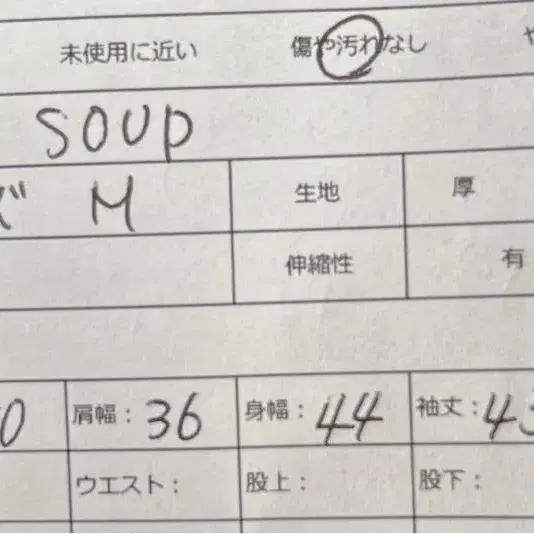 未使用に近い 傷や汚れなし
SOUP
M 生地 厚
伸縮性 有
0 肩幅： 36 身幅： 44 袖丈： 43
ウエスト： 股上： 股下：